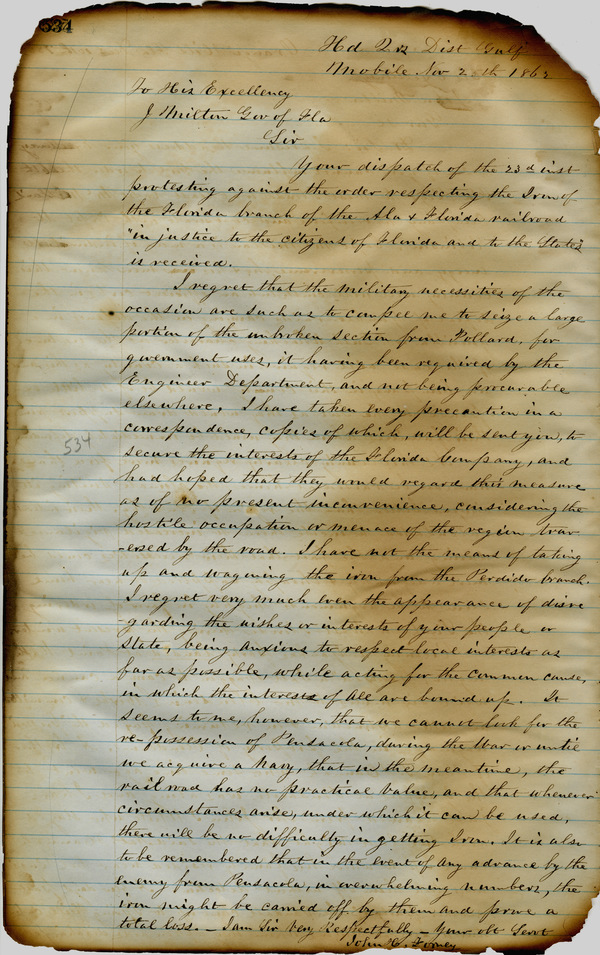 534
Hd Qrs Dist Gulf
Mobile Nov 2 th 1862
To His Excellency
J Milton Gov of Fla
Sir
Your dispatch of the 23d inst
protesting against the order respecting the Iron of
the Florida branch of the Ala & Florida railroad
"in justice to the citizens of Florida and to the State"
is received.
I regret that the military necessities of the
occasion are such as to compel me to seize a large
portion of the unbroken section from Pollard, for
government uses, it having been required by the
Engineer Department, and not being procurable
elsewhere. I have taken every precaution in a
correspondence, copies of which, will be sent you, to
534
secure the interests of the Florida Company, and
had hoped that they would regard this measure
as of no present inconvenience, considering the
hostile occupation or menace of the region trav
-ersed by the road. I have not the means of taking
up and wagoning the iron from the Perdido branch.
I regret very much even the appearance of disre
-garding the wishes or interests of your people or
State, being anxious to respect local interests as
far as possible, while acting for the common cause,
in which the interests of all are bound up. It
seems to me, however, that we cannot look for the
re-possession of Pensacola, during the War or until
we acquire a Navy, that in the meantime, the
railroad has no practical value, and that whenever
circumstances arise, under which it can be used,
there will be no difficulty in getting Iron. It is also
to be remembered that in the event of any advance by the
enemy from Pensacola, in overwhelming numbers, the
iron might be carried off by them and prove a
total loss. - I am Sir Very Respectfully - Your obt Servt
John H. Forney